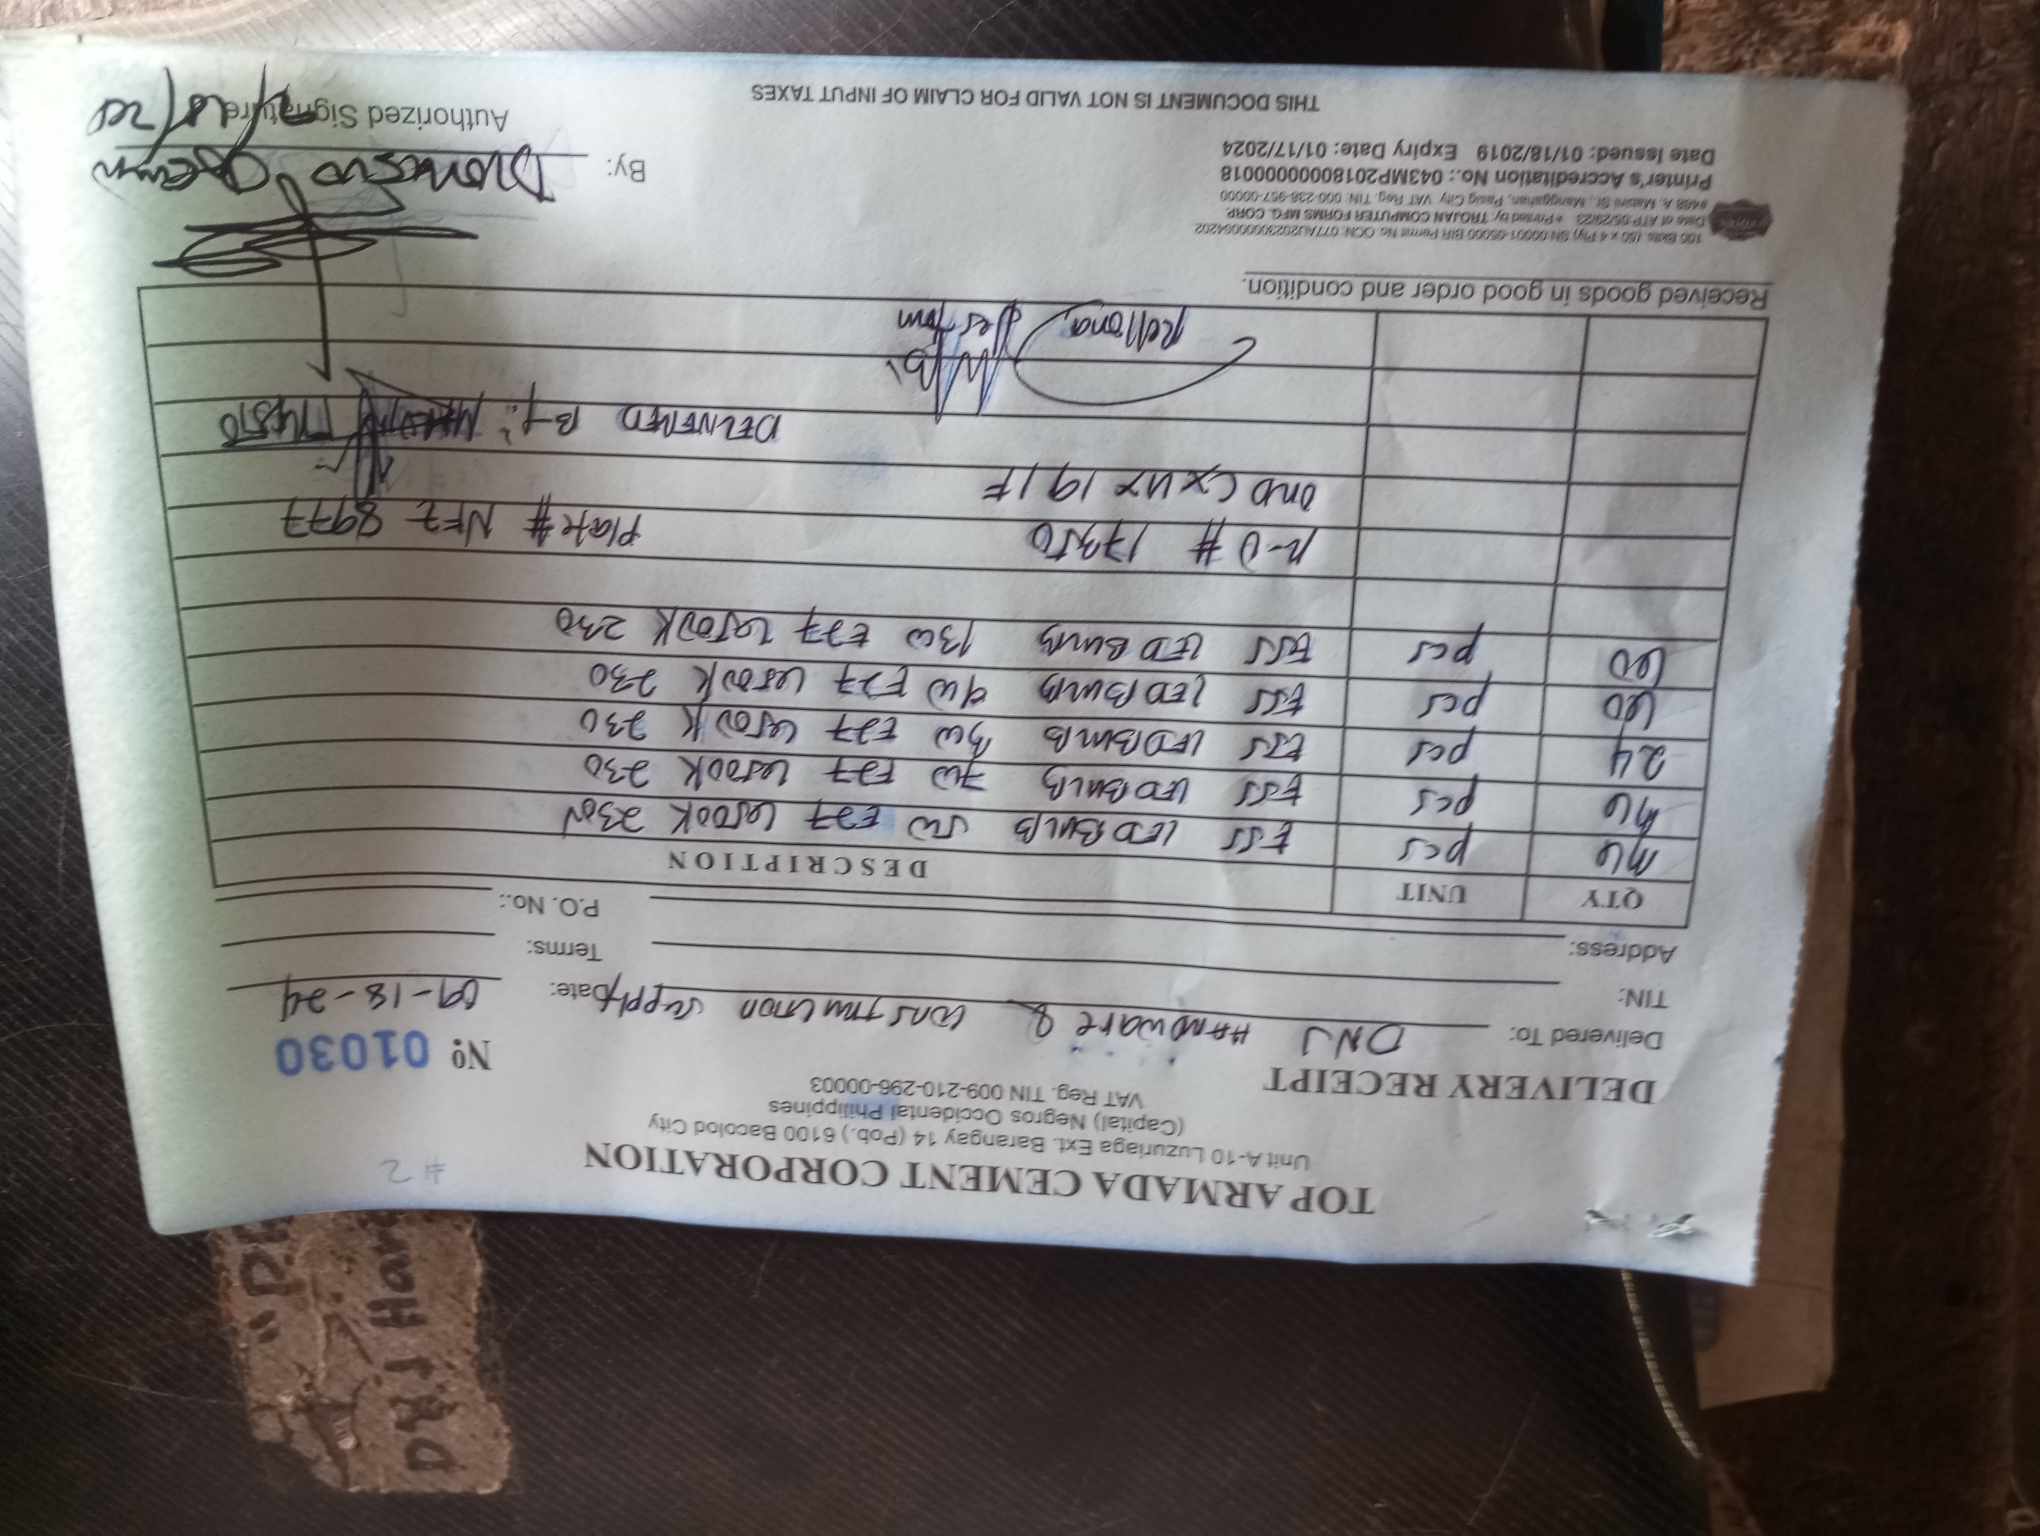 #2
TOP ARMADA CEMENT CORPORATION
Unit A-10 Luzuriaga Ext. Barangay 14 (Pob.) 6100 Bacolod City
(Capital) Negros Occidental Philippines
VAT Reg. TIN 009-210-296-00003
DELIVERY RECEIPT Nº 01030
Delivered To: DNJ HARDWARE & CONSTRUCTION SUPPLY Date: 09-18-24
TIN: Terms:
Address: P.O. No.:
QTY UNIT DESCRIPTION
pcs ESS LED BULB 5W E27 6500K 230V
pcs ESS LED BULB 7W E27 6500K 230
24 pcs ESS LED BULB 3W E27 6500K 230
60 pcs ESS LED BULB 9W E27 6500K 230
60 pcs ESS LED BULB 13W E27 6500K 230
# 17350 Plate # NFZ 8977
DELIVERED BY:
Received goods in good order and condition.
100 Bklts. (50 x 4 Ply) SN 00001-05000 BIR Permit No. OCN: 077AU20230000004202
Date of ATP 05/29/23 • Printed by: TROJAN COMPUTER FORMS MFG. CORP.
#46B A. Mabini St., Manggahan, Pasig City VAT Reg. TIN: 000-238-957-00000
Printer's Accreditation No.: 043MP20180000000018
Date Issued: 01/18/2019 Expiry Date: 01/17/2024
By:
Authorized Signature
THIS DOCUMENT IS NOT VALID FOR CLAIM OF INPUT TAXES